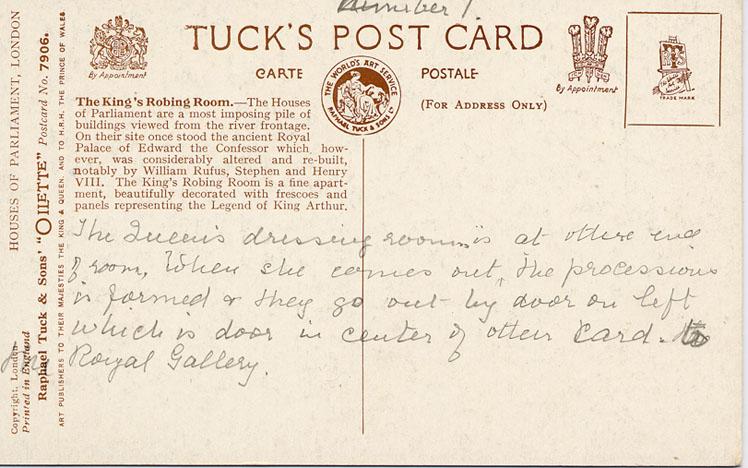 Number 1.
TUCK'S POST CARD
CARTE POSTALE
By Appointment
By Appointment
(FOR ADDRESS ONLY)
THE WORLD'S ART SERVICE
RAPHAEL TUCK & SONS LD
TRADE MARK
The King's Robing Room.—The Houses
of Parliament are a most imposing pile of
buildings viewed from the river frontage.
On their site once stood the ancient Royal
Palace of Edward the Confessor which, how-
ever, was considerably altered and re-built,
notably by William Rufus, Stephen and Henry
VIII. The King's Robing Room is a fine apart-
ment, beautifully decorated with frescoes and
panels representing the Legend of King Arthur.
The Queen's dressing room is at other end
of room, When she comes out, the processions
is formed & they go out by door on left
which is door in center of other card. to
Royal Gallery.
HOUSES OF PARLIAMENT, LONDON
Raphael Tuck & Sons' "OILETTE" Postcard No. 7906.
ART PUBLISHERS TO THEIR MAJESTIES THE KING & QUEEN, AND TO H.R.H. THE PRINCE OF WALES
Copyright, London
Printed in England